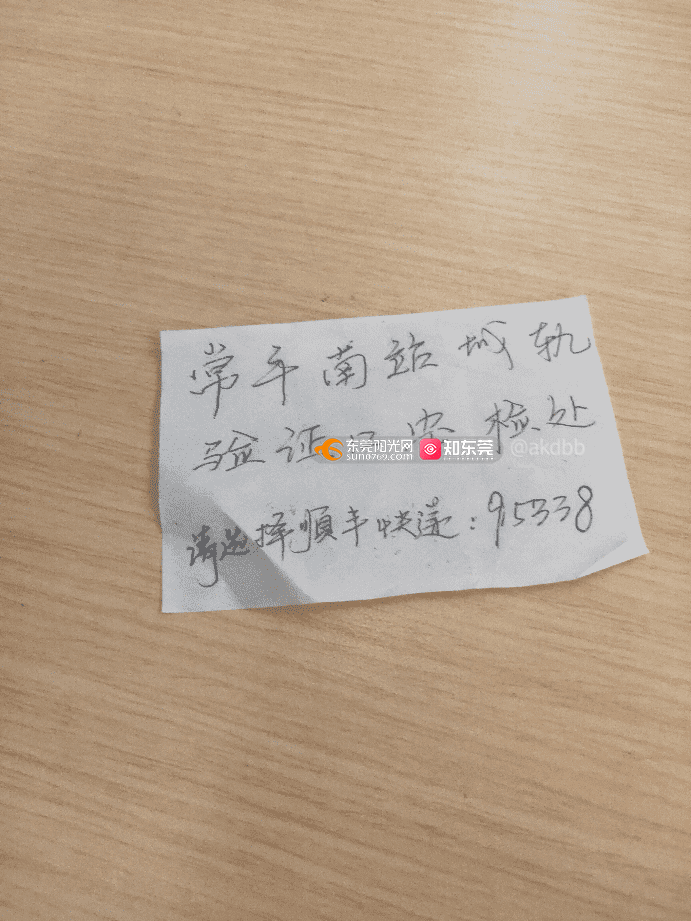 常平南站城轨
验证口安检处
东莞阳光网
sun0769.com
知东莞
@akdbb
请选择顺丰快递:95338